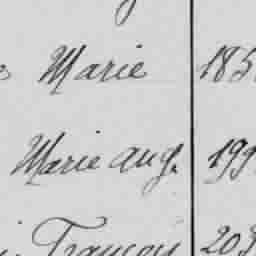 Marie 185
Marie Aug. 199
François 203